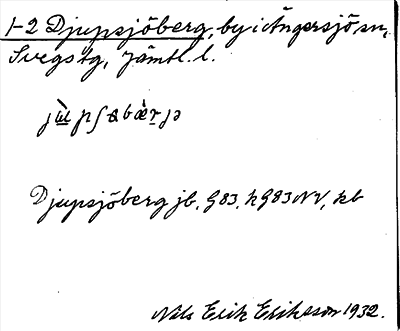 1-2 Djupsjöberg, by i Ängersjö sn,
Svegs tg, Jämtl. l.
Djupsjöberg jb. G83. h G83 NV, kb
Nils Erik Eriksson 1932.